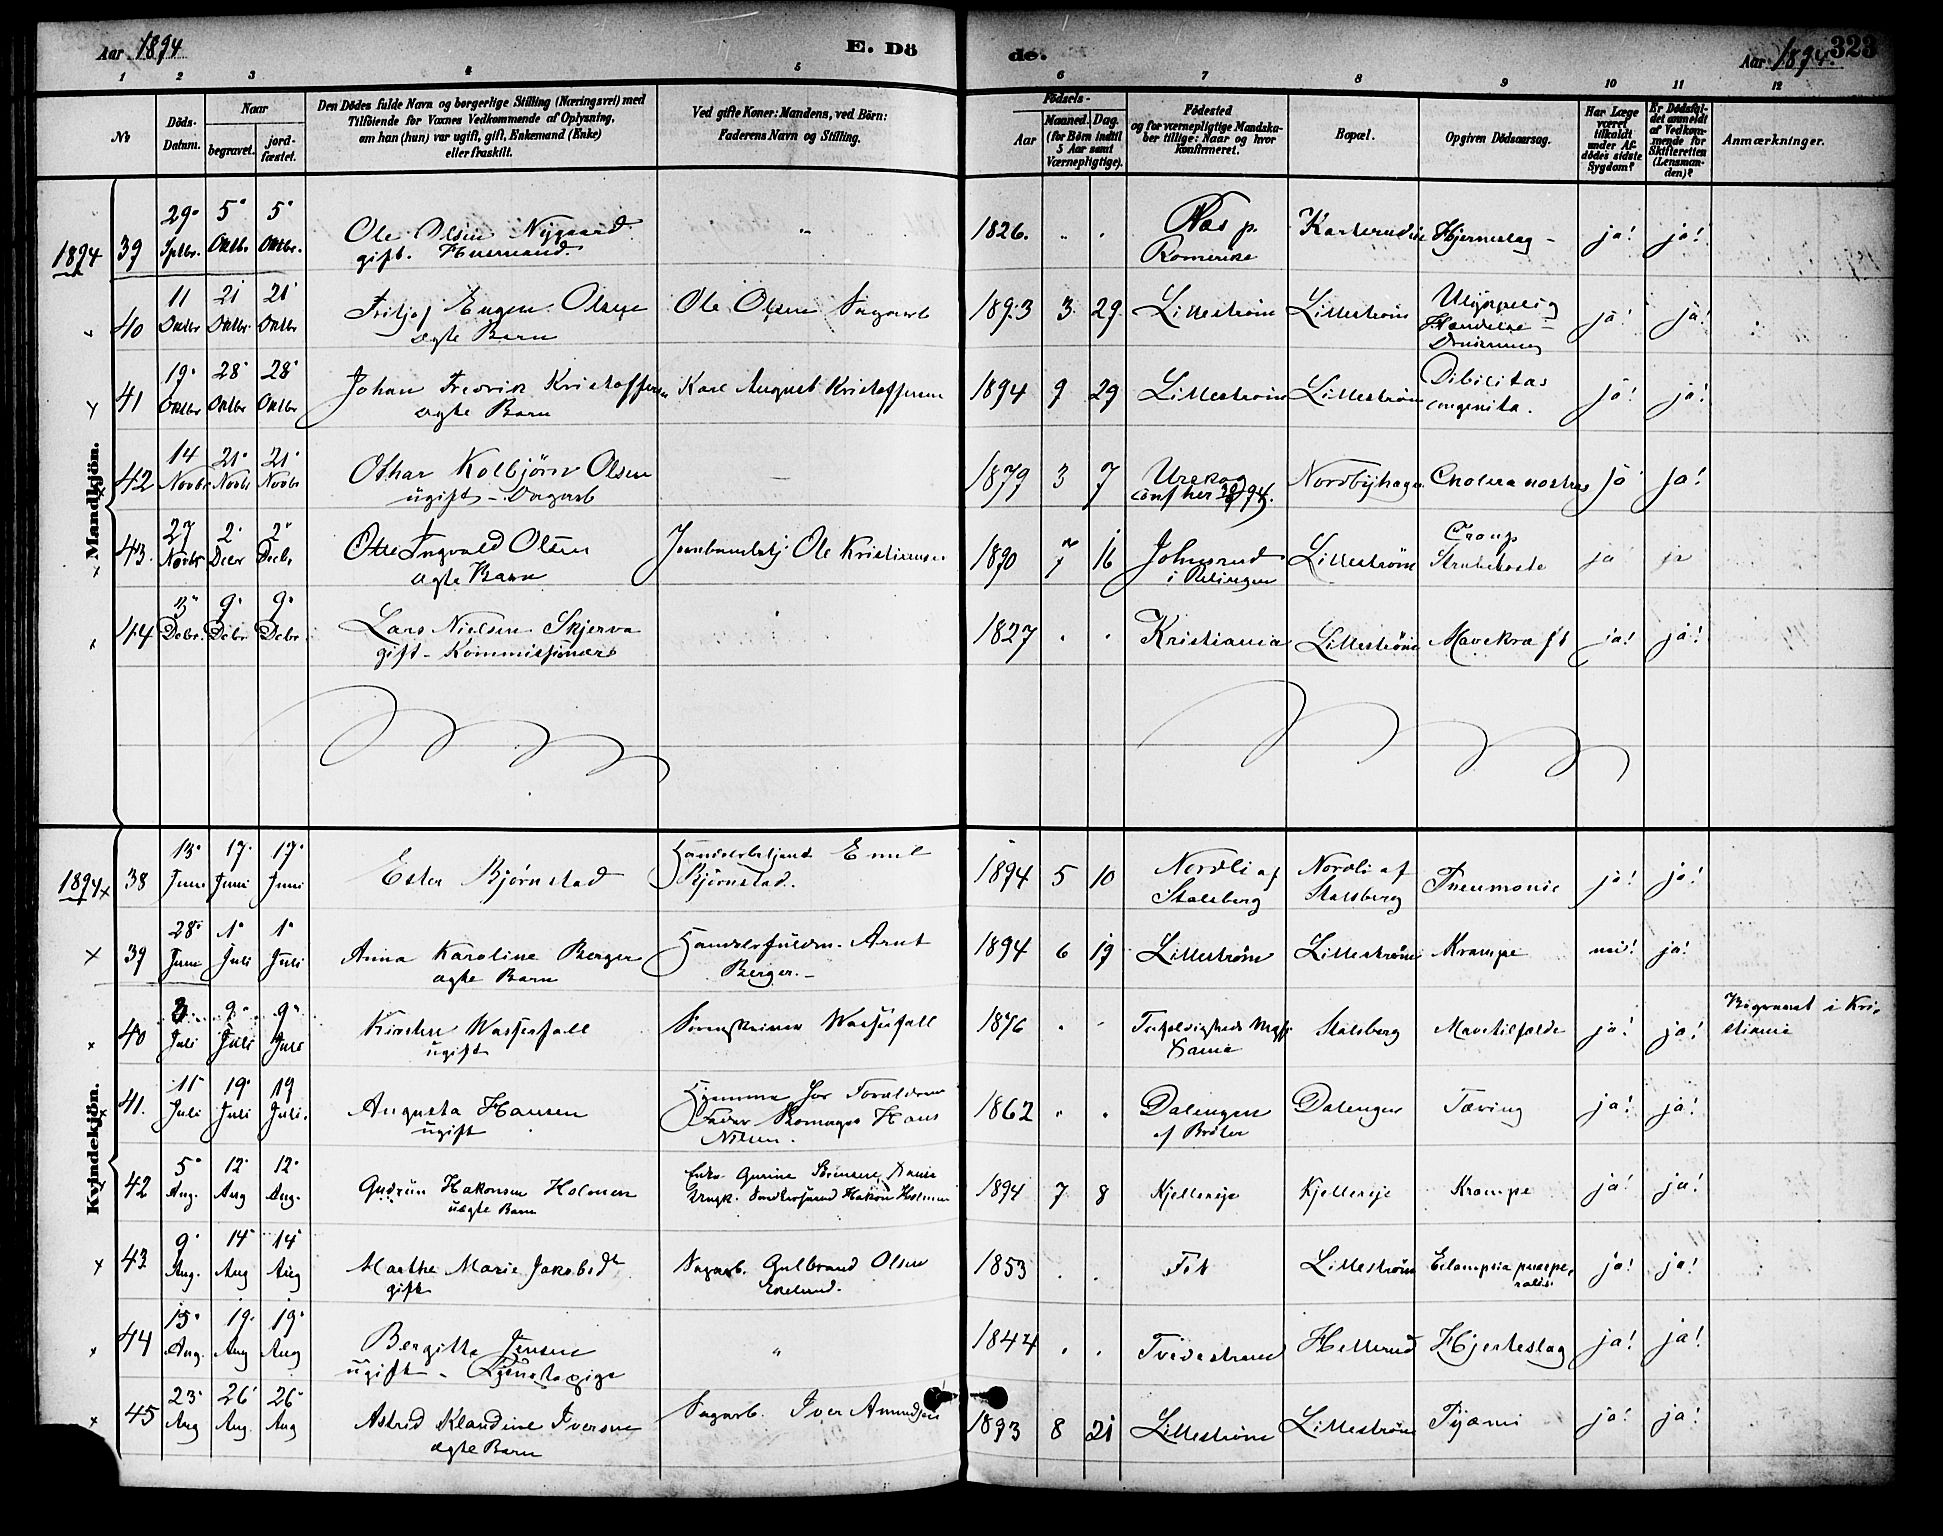 Aar 1894
E. Dö
de.
Aar 1894. 323
1 2 3 4 5 6 7 8 9 10 11 12
No
Döds-
Datum.
Naar
begravet.
jord-
fæstet.
Den Dödes fulde Navn og borgerlige Stilling (Næringsvei) med
Tilföiende for Voxnes Vedkommende af Oplysning,
om han (hun) var ugift, gift, Enkemand (Enke)
eller fraskilt.
Ved gifte Koner: Mandens, ved Börn:
Faderens Navn og Stilling.
Födsels-
Aar
Maaned. Dag.
(for Börn indtil
5 Aar samt
Værnepligtige).
Födested
og for værnepligtige Mandska-
ber tillige: Naar og hvor
konfirmeret.
Bopæl.
Opgiven Dödsaarsag.
Har Læge
været
tilkaldt
under Af-
dödes sidste
Sygdom?
Er Dödsfal-
det anmeldt
af Vedkom-
mende for
Skifteretten
(Lensman-
den)?
Anmærkninger.
Mandkjön.
1894 39 29 Sptbr. 5 Oktbr. 5 Oktbr.
Ole Olsen Nygaard
gift. Huusmand.
1826. Næs p.
Romerike
Hjerneslag - ja! ja!
40 11 Oktbr 21 Oktbr 21 Oktbr
Fritjof Eugen Olsen
ægte Barn
Ole Olsen Sagarb
1893 3 29 Lillestrøm Lillestrøm
Ulykkelig
Hændelse -
Drukning
ja! ja!
41 19 Oktbr 28 Oktbr 28 Oktbr
Johan Fredrik Kristoffersen
ægte Barn
Karl August Kristoffersen
1894 9 29 Lillestrøm Lillestrøm
Dibilitas
congenita.
ja! ja!
42 14 Novbr 21 Novbr 21 Novbr
Othar Kolbjørn Olsen
ugift - Dagarb
1879 3 7 Urskog
conf her
Nordbyhagen Cholera nostras ja ja!
43. 27 Novbr 2 Decbr 2 Decbr
Ole Ingvald Olsen
ægte Barn
Ole Kristiansen
1890 7 16 Johnsrud
i Rælingen
Lillestrøm
Croup
Strubehoste
ja ja
44 3 Debr. 9 Debr. 9 Debr.
Lars Nielsen Skjerva
gift - Kommissionær
1827 Kristiania Lillestrøm Mavekræft ja! ja!
Kvindekjön.
1894 38 13 Juni 17 Juni 17 Juni
Ester Bjørnstad
Handelsbetjent Emil
Bjørnstad.
1894 5 10 Nordli af
Stalsberg
Nordli af
Stalsberg
Pneumonie ja! ja!
39 28 Juni 1 Juli 1 Juli
Anna Karoline Berger
ægte Barn
Handelsfuldm. Arnt
Berger. -
1894 6 19 Lillestrøm Lillestrøm Krampe nei! ja!
40 3 Juli 9 Juli 9 Juli
Kirsten Wasserfall
ugift
Wasserfall
1876 Stalsberg Mavetilfælde ja! ja!
Begravet i Kri-
stiania
41. 11 Juli 19 Juli 19 Juli.
Augusta Hansen
ugift
Hjemme hos Forældrene
Fader Skomager Hans
Nilsen.
1862 Dalengen
af Bråter
Dalengen Tæring ja! ja!
42 5 Aug. 12 Aug 12 Aug.
Gudrun Hakonsen Holmen
uægte Barn
Hakon Holmen
1894 7 8 Kjellereje Kjellereje Krampe ja! ja!
43 9 Aug. 14 Aug 14 Aug
Marthe Marie Jakobsdt
gift
Sagarb. Gulbrand Olsen
Ekelund.
1853 Fet Lillestrøm
Eclampsia puerpe-
ralis.
ja! ja!
44 15 Aug. 19 Aug 19 Aug
Bergitte Jensen
ugift - Tjenestepige
1844 Tvedestrand Hellerud Hjerteslag ja! ja!
45 23 Aug 26 Aug. 26 Aug
Astrid Klaudine Iversen
ægte Barn
Sagarb. Iver Amundsen
1893 8 21 Lillestrøm Lillestrøm Pyæmi ja! ja!